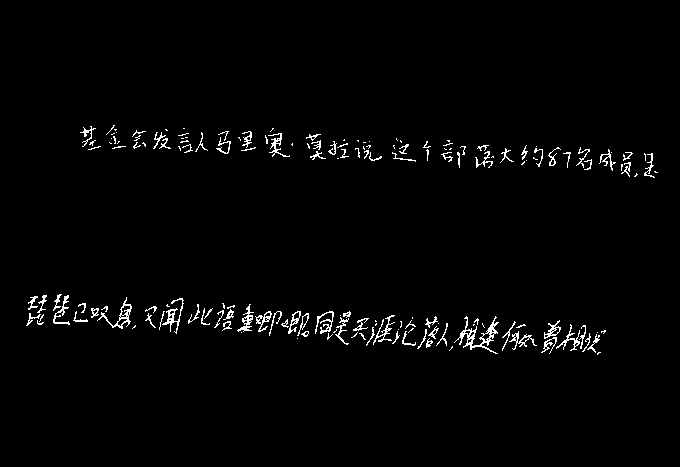 基金会发言人马里奥·莫拉说,这个部落大约87名成员,是
琵琶已叹息,又闻此语重唧唧。同是天涯沦落人,相逢何必曾相识